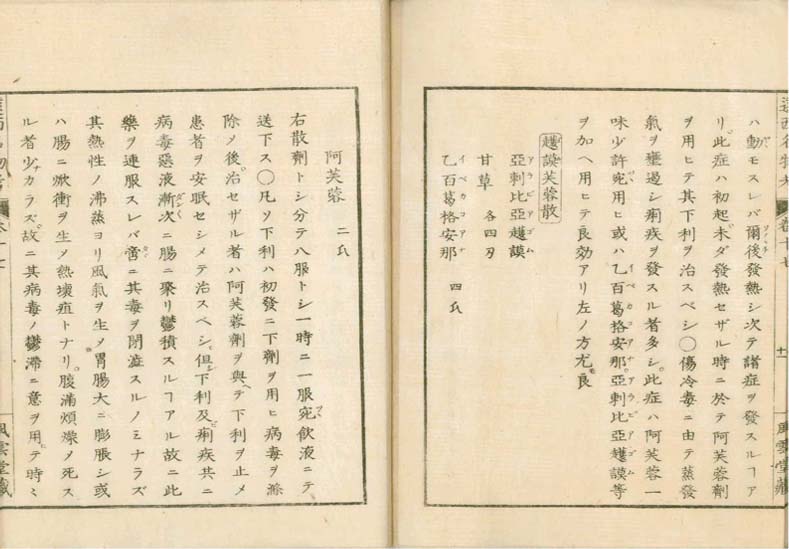 ハ動モスレバ爾後發熱シ次テ諸症ヲ發スルヿア
リ此症ハ初起未ダ發熱セザル時ニ於テ阿芙蓉劑
ヲ用ヒテ其下利ヲ治スベシ〇傷冷毒ニ由テ蒸發
氣ヲ壅遏シ痢疾ヲ發スル者多シ此症ハ阿芙蓉一
味少許宛用ヒ或ハ乙百葛格安那亞剌比亞護謨等
ヲ加ヘ用ヒテ良効アリ左ノ方尤良
護謨芙蓉散
亞剌比亞護謨
甘草 各四刃
乙百葛格安那 四氏
十一
風雲堂藏
阿芙蓉 二氏
右散劑トシ分テ八服トシ一時ニ一服宛飲液ニテ
送下ス〇凡ソ下利ハ初發ニ下劑ヲ用ヒ病毒ヲ滌
除メ後治セザル者ハ阿芙蓉劑ヲ與ヘテ下利ヲ止メ
患者ヲ安眠セシメテ治スベシ但シ下利及痢疾共ニ
病毒惡液漸次ニ腸ニ聚リ鬱積スルヿアル故ニ此
藥ヲ連服スレバ啻ニ其毒ヲ閉澁スルノミナラズ
其熱性ノ沸蒸ヨリ風氣ヲ生メ胃腸大ニ膨脹シ或
ハ腸ニ焮衝ヲ生メ熱壞疽トナリ腹滿煩燥メ死ス
ル者少カラズ故ニ其病毒ノ鬱滯ニ意ヲ用テ時ミ
風雲堂藏